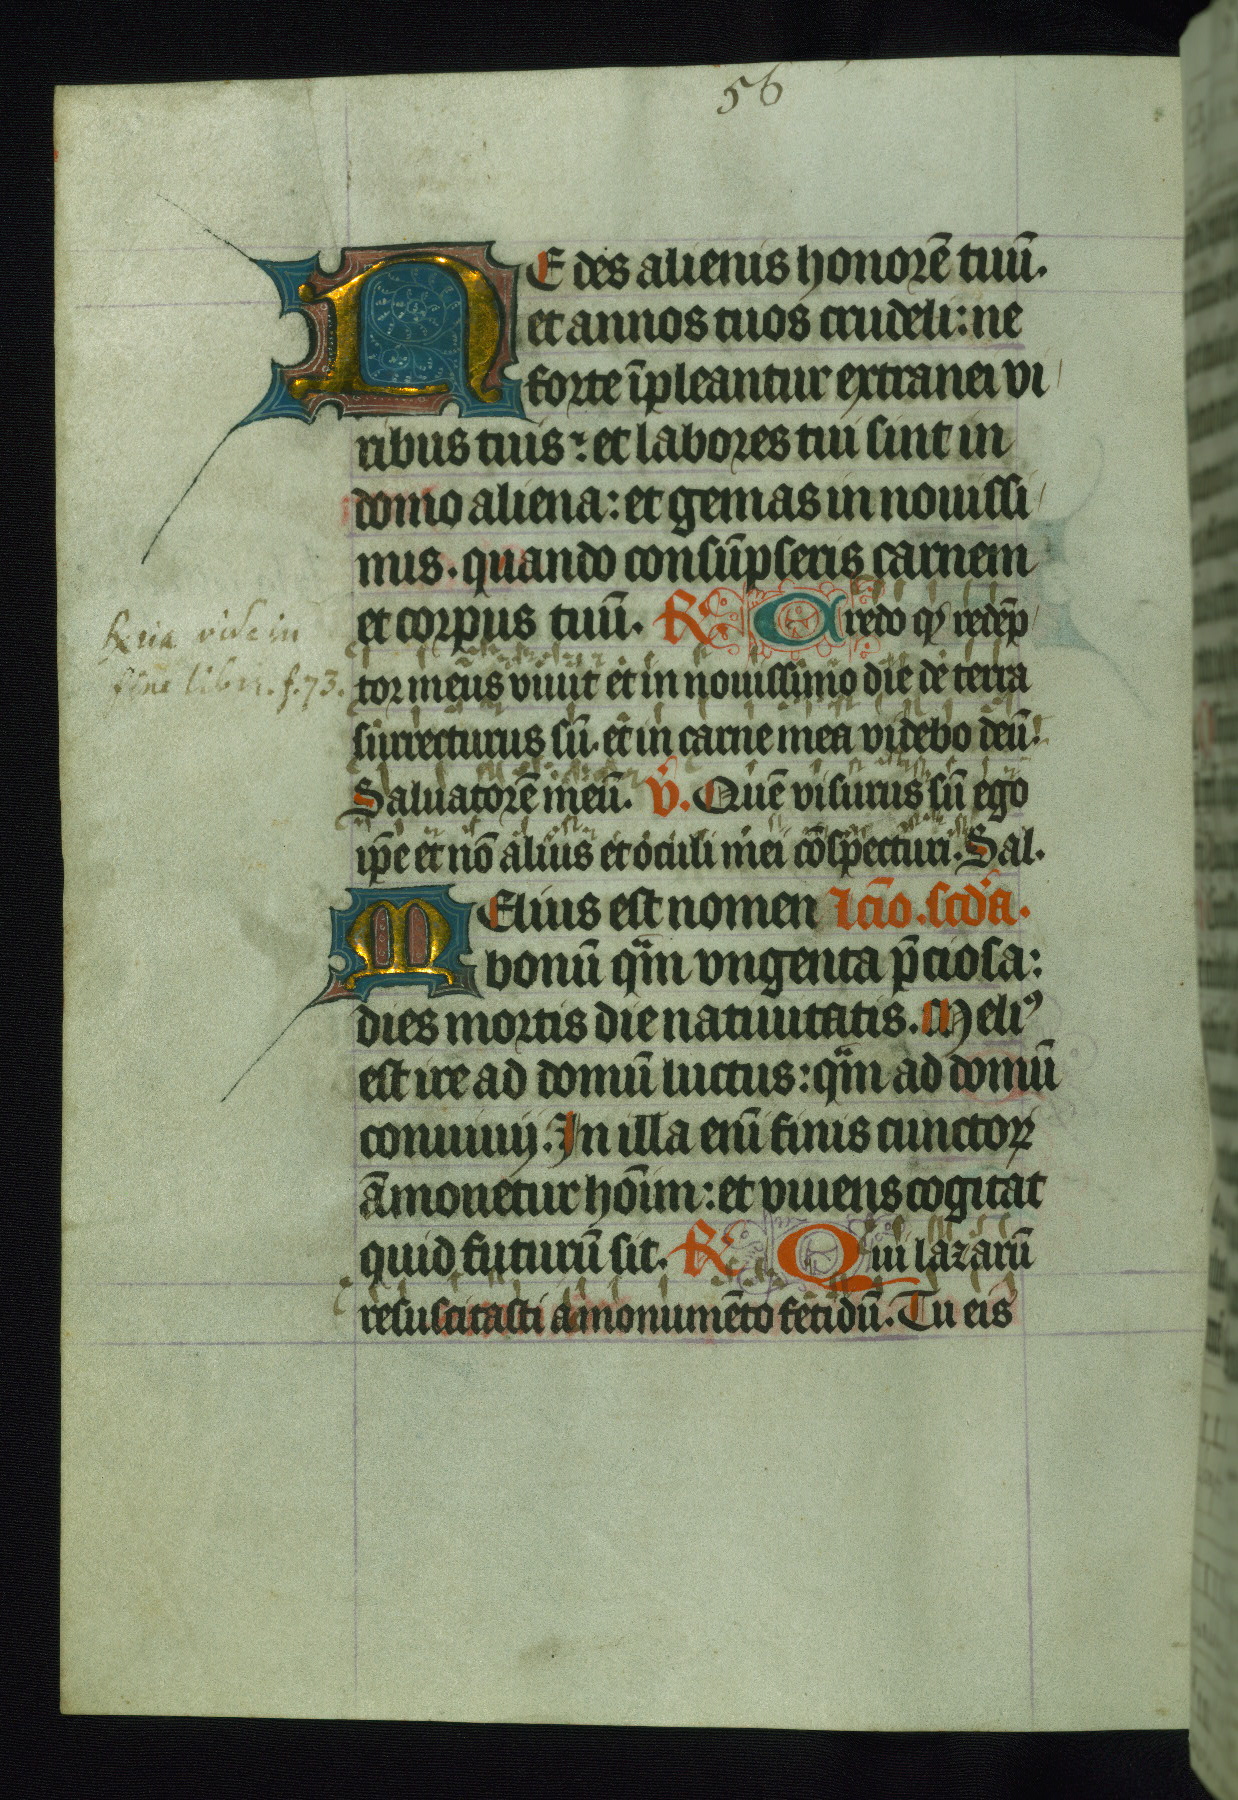 56
NE des alienis honorē tuū.
et annos tuos crudeli: ne
forte īpleantur extranei vi
ribus tuis: et labores tui sint in
domo aliena: et gemas in nouissi
mis. quando consūpseris carnem
et corpus tuū. R Credo qꝫ redēp
vide in
fine libri. f. 73.
tor meus viuit et in nouissimo die de terra
surrecturus sū. et in carne mea videbo deū
Saluatorē meū. V. Quē visurus sū ego
ip̄e et nō alius et oculi mei cōspecturi. Sal.
MElius est nomen lc̄io. scd̄a.
bonū qm̄ vngenta p̄ciosa:
dies mortis die natiuitatis. Meliꝰ
est ire ad domū luctus: qm̄ ad domū
conuiuij. In illa enī finis cunctoꝝ
āmonetur hōim: et viuens cogitat
quid futurū sit. R Qui lazarū
resuscitasti a monumēto fetidū. Tu eis